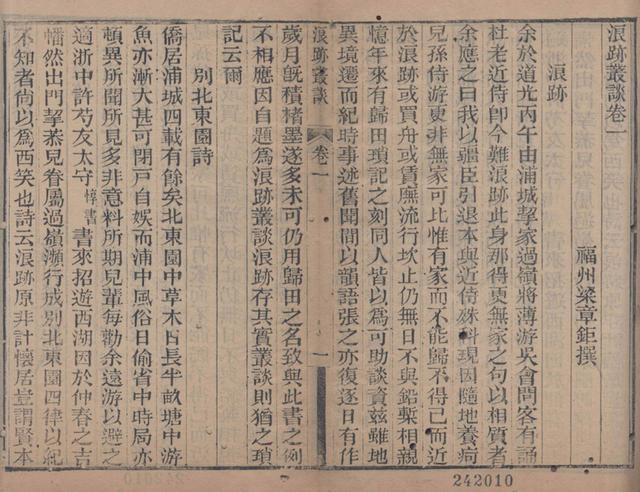 浪跡叢談卷一
福州梁章鉅撰
浪跡
余於道光丙午由浦城挈家過嶺將薄游吳會問客有誦
杜老近侍卽今難浪跡此身那得更無家之句以相質者
余應之曰我以疆臣引退本與近侍殊科現因隨地養疴
兒孫侍游更非無家可比惟有家而不能歸不得已而近
於浪跡或買舟或賃廡流行坎止仍無日不與鉛槧相親
憶年來有歸田瑣記之刻同人皆以爲可助談資茲雖地
異境遷而紀時事述舊聞間以韻語張之亦復逐日有作
浪跡叢談
卷一
一
歲月旣積楮墨遂多未可仍用歸田之名致與此書之例
不相應因自題爲浪跡叢談浪跡存其實叢談則猶之瑣
記云爾
別北東園詩
僑居浦城四載有餘矣北東園中草木日長半畝塘中游
魚亦漸大甚可閉戶自娛而浦中風俗日偷省中時局亦
頓異所聞所見多非意料所期兒輩每勸余遠游以避之
適浙中許芍友太守惇書書來招遊西湖因於仲春之吉
幡然出門挈恭兒眷屬過嶺瀕行成別北東園四律以紀
不知者尚以爲西笑也詩云浪跡原非計懷居豈謂賢本
242010